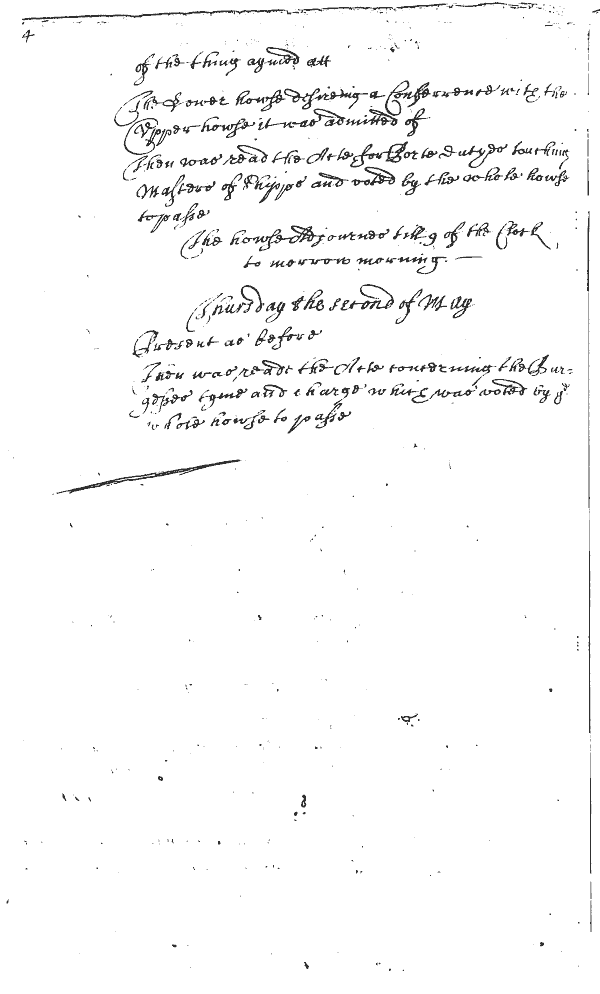 4
of the thing aymed att
The Lower howse desireing a Conferrence with the
Vpper howse it was admitted of
Then was read the Acte for Porte Dutyes touching
Masters of Shipps and voted by the whole howse
to passe
The howse Adjournes till 9 of the Clock
to morrow morning. —
Thursday the second of May
Present as before
Then was reade the Acte concerning the Bur-
gesses tyme and charge which was voted by ye
whole howse to passe